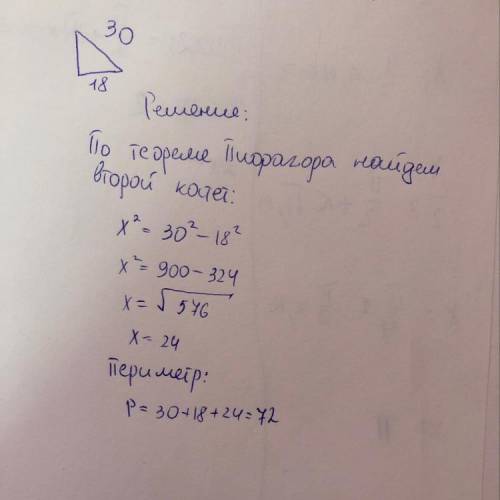 30
18
Решение:
По теореме Пифагора найдем
второй катет:
x² = 30² - 18²
x² = 900 - 324
x = √576
x = 24
Периметр:
P = 30+18+24=72